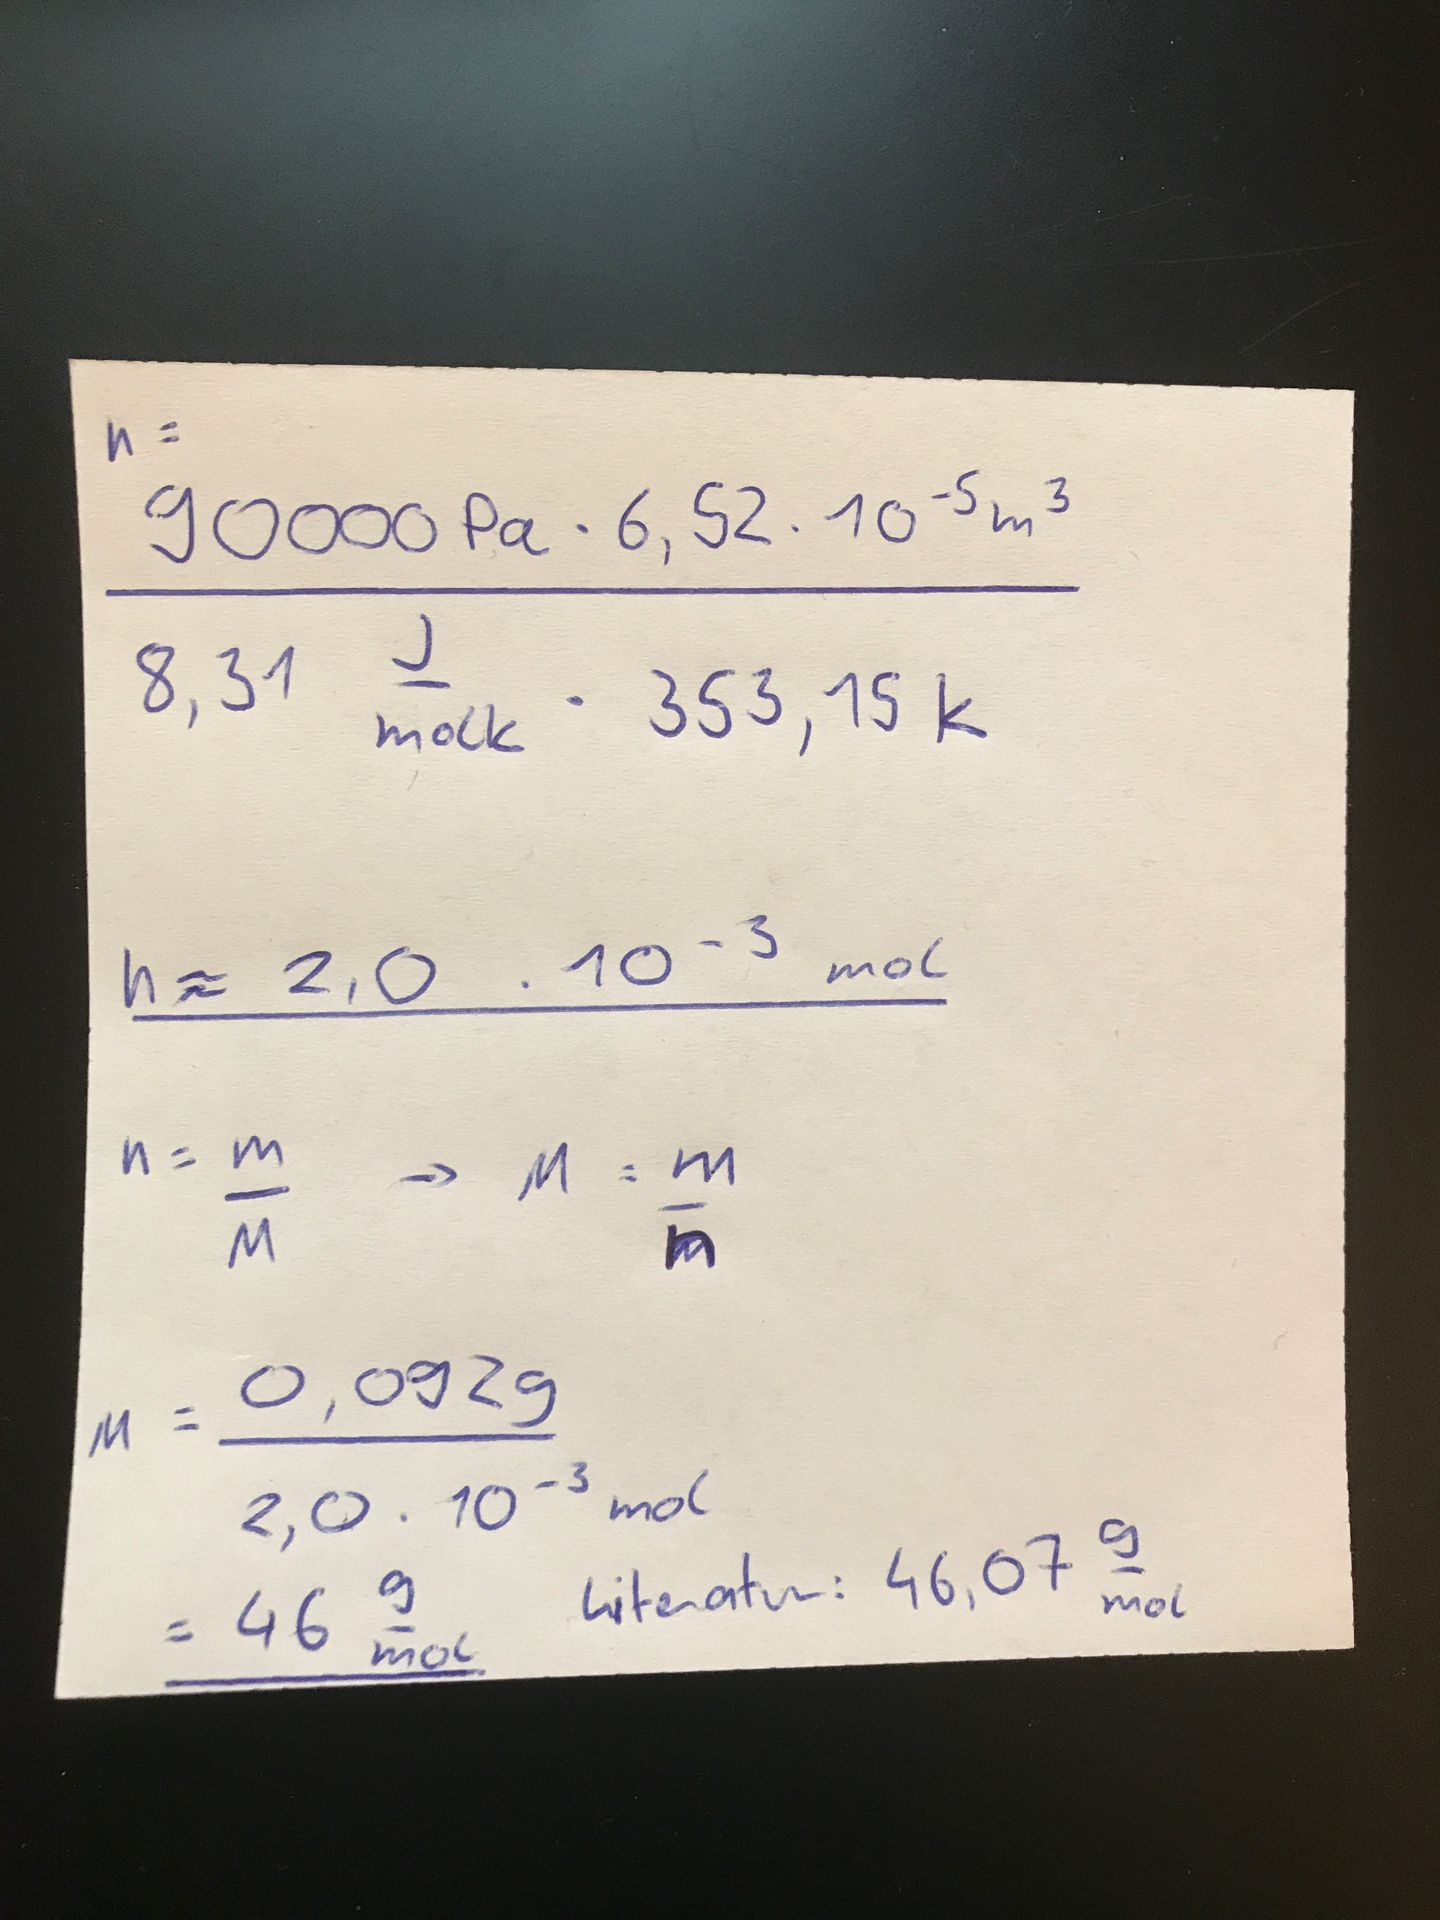 n =
90000 Pa · 6,52 · 10⁻⁵ m³
8,31 J/molk · 353,15 k
n ≈ 2,0 · 10⁻³ mol
n = m/M → M = m/n
M = 0,092g
2,0 · 10⁻³ mol
= 46 g/mol Literatur: 46,07 g/mol